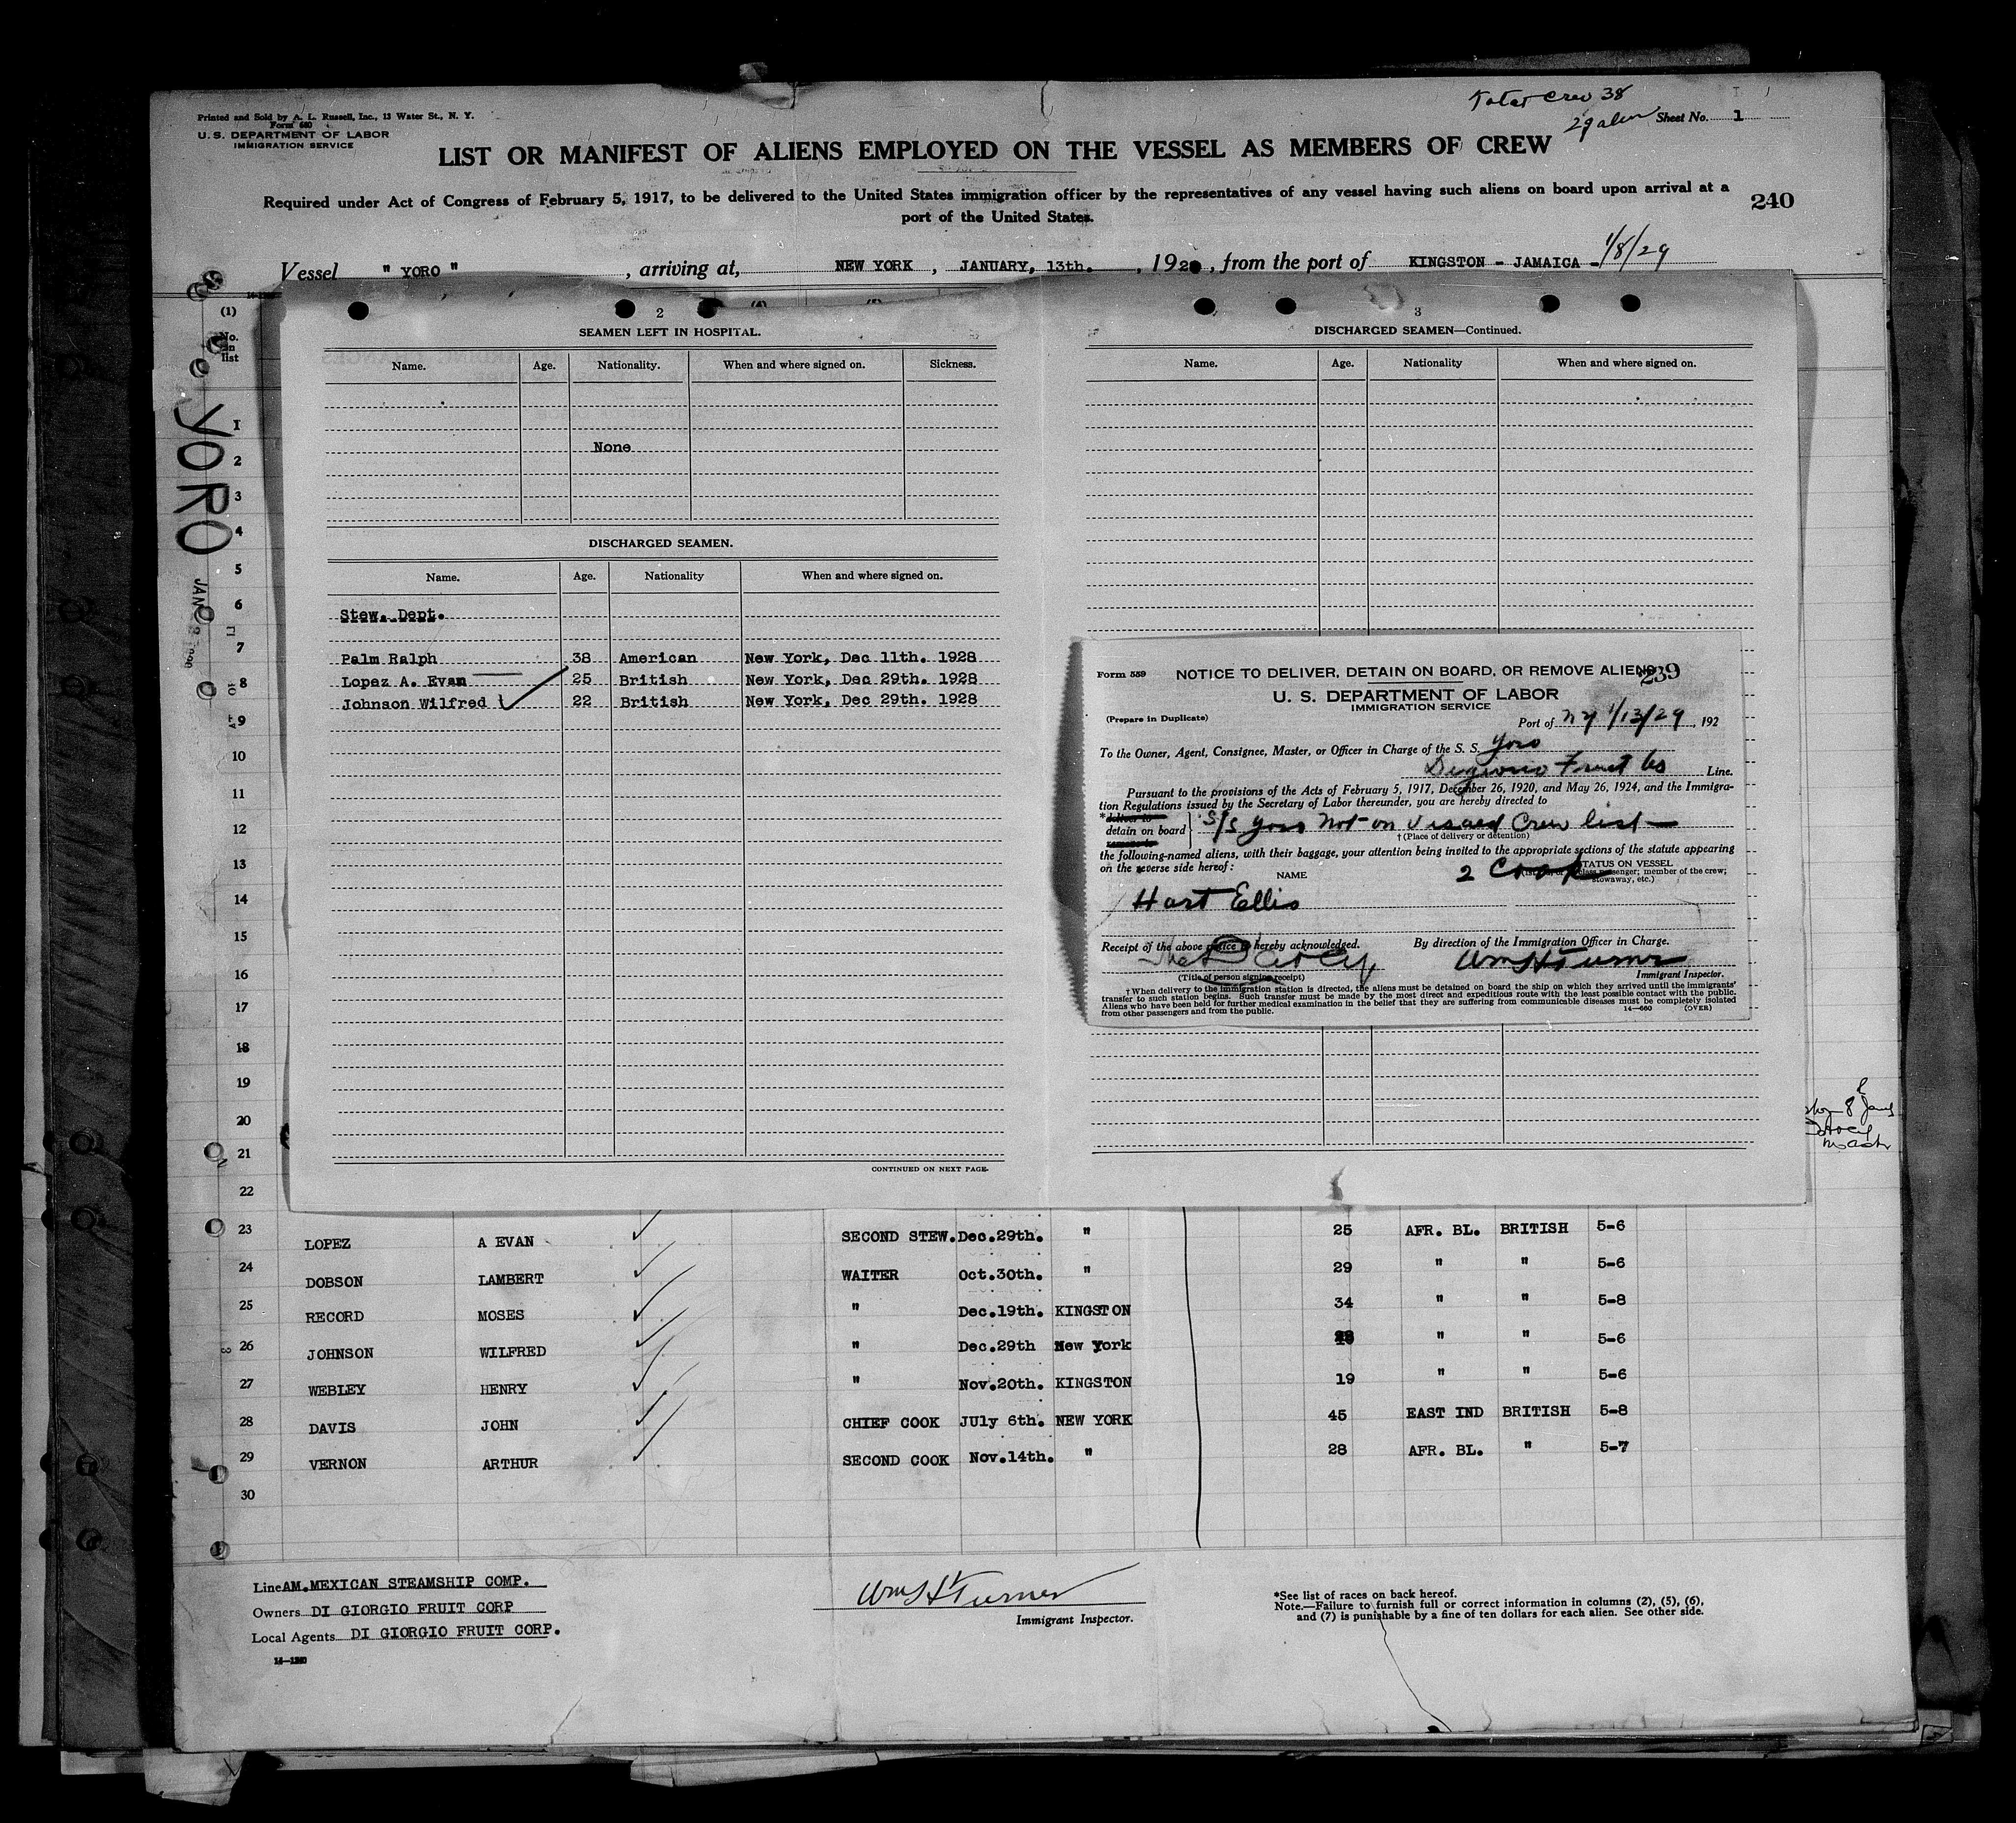 Total Crew 38
29 alien
Printed and Sold by A. L. Russell, Inc., 13 Water St., N. Y.
Form 680
U. S. DEPARTMENT OF LABOR
IMMIGRATION SERVICE
Sheet No. 1
LIST OR MANIFEST OF ALIENS EMPLOYED ON THE VESSEL AS MEMBERS OF CREW
Required under Act of Congress of February 5, 1917, to be delivered to the United States immigration officer by the representatives of any vessel having such aliens on board upon arrival at a
port of the United States.
240
Vessel " YORO " , arriving at, NEW YORK , JANUARY, 13th. , 192 , from the port of KINGSTON - JAMAICA - 1/8/29
(1)
No. on list
YORO
JAN
1
2
3
4
5
6
7
8
9
10
11
12
13
14
15
16
17
18
19
20
21
22
2
SEAMEN LEFT IN HOSPITAL.
Name. Age. Nationality. When and where signed on. Sickness.
None
DISCHARGED SEAMEN.
Name. Age. Nationality When and where signed on.
Stew. Dept.
Palm Ralph 38 American New York, Dec 11th. 1928
Lopez A. Evan 25 British New York, Dec 29th. 1928
Johnson Wilfred 22 British New York, Dec 29th. 1928
CONTINUED ON NEXT PAGE.
3
DISCHARGED SEAMEN—Continued.
Name. Age. Nationality When and where signed on.
Form 559 NOTICE TO DELIVER, DETAIN ON BOARD, OR REMOVE ALIENS
239
U. S. DEPARTMENT OF LABOR
IMMIGRATION SERVICE
(Prepare in Duplicate)
Port of NY 1/13/29, 192
To the Owner, Agent, Consignee, Master, or Officer in Charge of the S. S. Yoro
Digiorio Fruit Co Line.
Pursuant to the provisions of the Acts of February 5, 1917, December 26, 1920, and May 26, 1924, and the Immigra-
tion Regulations issued by the Secretary of Labor thereunder, you are hereby directed to
*deliver to
detain on board
remove to
S/S Yoro Not on Visaed Crew list
†(Place of delivery or detention)
the following-named aliens, with their baggage, your attention being invited to the appropriate sections of the statute appearing
on the reverse side hereof:
NAME
STATUS ON VESSEL
passenger; member of the crew;
stowaway, etc.)
2 Cook
Hart Ellis
Receipt of the above notice is hereby acknowledged.
By direction of the Immigration Officer in Charge.
Wm H Turner
(Title of person signing receipt)
Immigrant Inspector.
†When delivery to the immigration station is directed, the aliens must be detained on board the ship on which they arrived until the immigrants'
transfer to such station begins. Such transfer must be made by the most direct and expeditious route with the least possible contact with the public.
Aliens who have been held for further medical examination in the belief that they are suffering from communicable diseases must be completely isolated
from other passengers and from the public.
14—660 (OVER)
23 LOPEZ A EVAN SECOND STEW. Dec.29th. " 25 AFR. BL. BRITISH 5-6
24 DOBSON LAMBERT WAITER Oct.30th. " 29 " " 5-6
25 RECORD MOSES " Dec.19th. KINGSTON 34 " " 5-8
26 JOHNSON WILFRED " Dec.29th New York " " 5-6
27 WEBLEY HENRY " Nov.20th. KINGSTON 19 " " 5-6
28 DAVIS JOHN CHIEF COOK JUly 6th. NEW YORK 45 EAST IND BRITISH 5-8
29 VERNON ARTHUR SECOND COOK Nov.14th. " 28 AFR. BL. " 5-7
30
Line AM.MEXICAN STEAMSHIP COMP.
Owners DI GIORGIO FRUIT CORP
Local Agents DI GIORGIO FRUIT CORP.
Wm H Turner
Immigrant Inspector.
*See list of races on back hereof.
Note.—Failure to furnish full or correct information in columns (2), (5), (6),
and (7) is punishable by a fine of ten dollars for each alien. See other side.